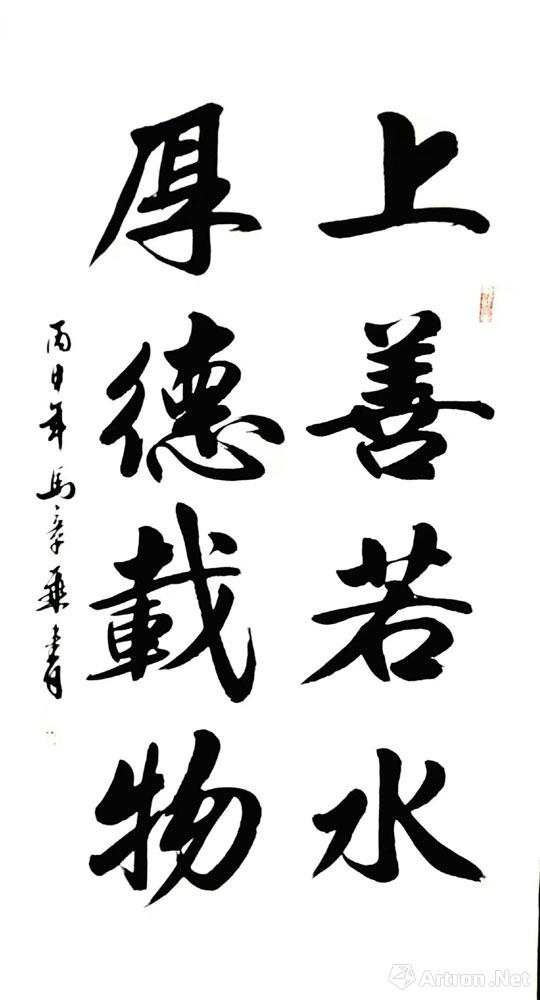 上善若水
厚德載物
丙申年馬章乘書
Artron.Net